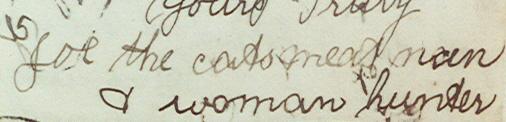 Yours Truly
Joe the cats meat man
& woman hunter